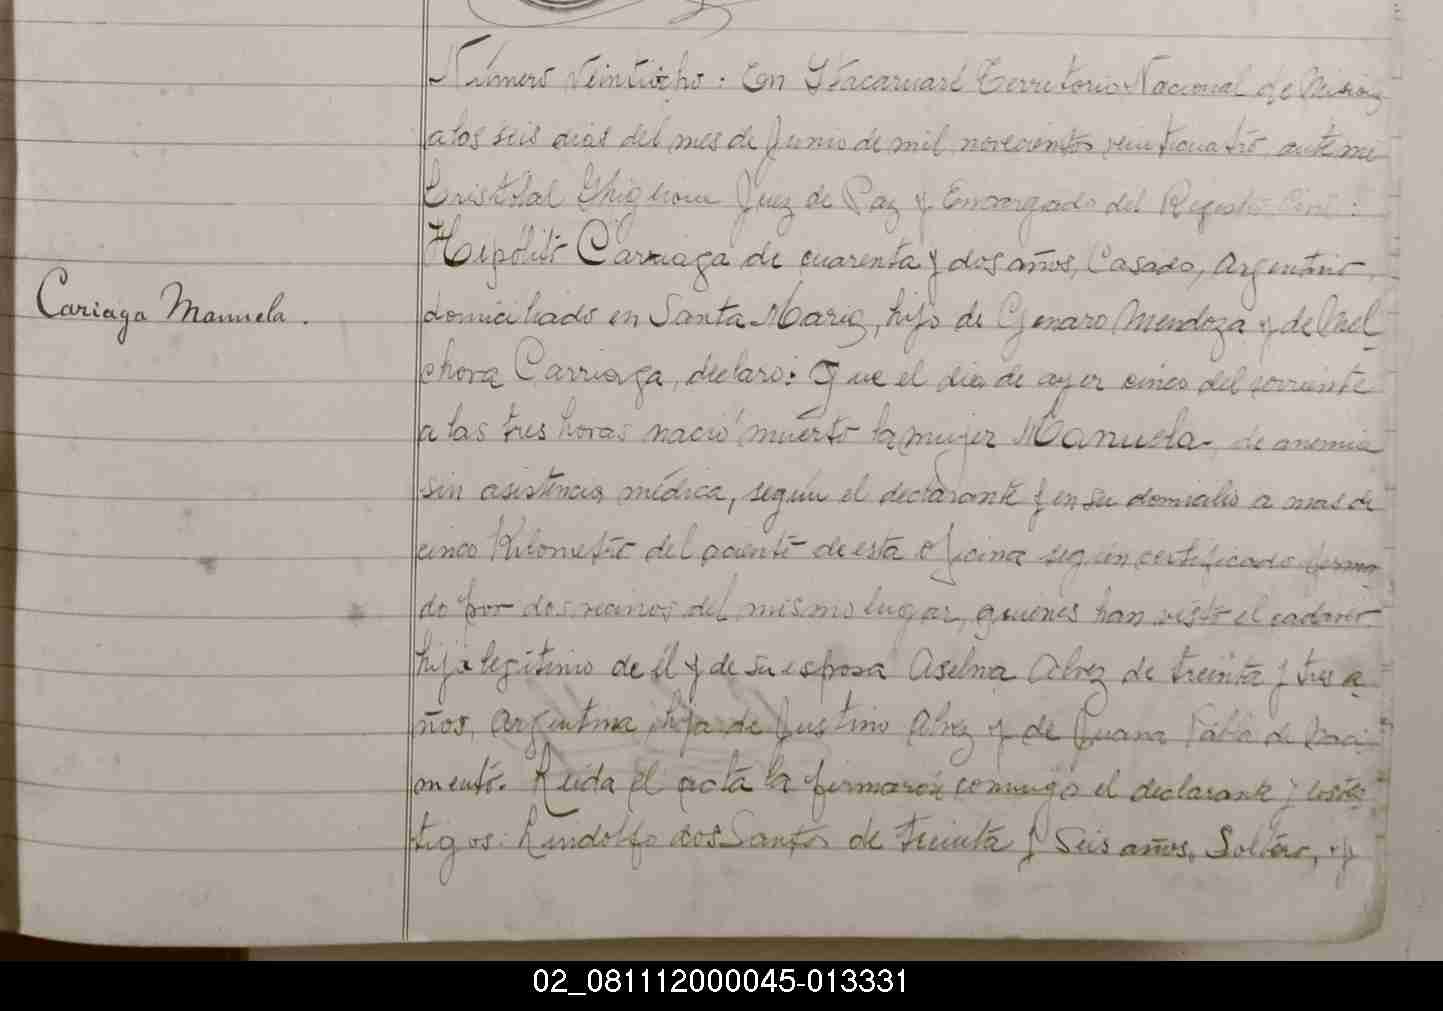 Número Veintiocho: En Itacaruaré Territorio Nacional de Misiones
a los seis dias del mes de Junio de mil novecientos veinticuatro, ante mi
Cristóbal Juez de Paz y Encargado del Registro Civil:
Hipólito Carriaga de cuarenta y dos años, Casado, Argentino,
Cariaga Manuela.
domiciliado en Santa Maria, hijo de Genaro Mendoza y de Mel-
chora Carriaga, declaro: Que el dia de ayer cinco del corriente
a las tres horas nació muerto la mujer Manuela, de anemia
sin asistencia médica, según el declarante y en su domicilio a mas de
cinco Kilometro del de esta oficina según certificado firma-
do por dos vecinos del mismo lugar, quienes han visto el cadaver
hija legitimo de él y de su esposa Aselma Alvez de treinta y tres a-
ños, Argentina, hija de Justino Alvez y de Juana Pabla de Naci-
mento. Leida el acta la firmaron conmigo el declarante y los tes-
tigos: Lindolfo dos Santos de treinta y seis años, Soltero, y
02_081112000045-013331